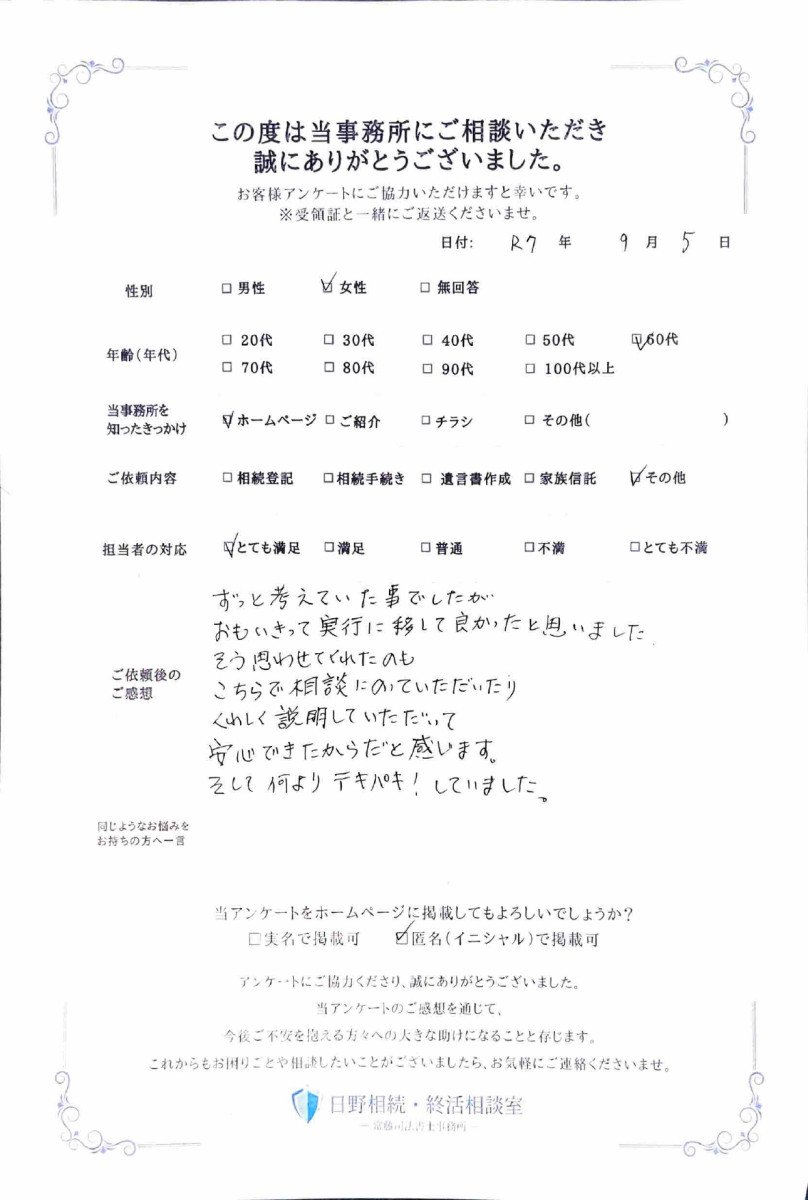 この度は当事務所にご相談いただき
誠にありがとうございました。
お客様アンケートにご協力いただけますと幸いです。
※受領証と一緒にご返送くださいませ。
日付: R7 年 9 月 5 日
性別 □男性 ☑女性 □無回答
年齢(年代)
□ 20代 □ 30代 □ 40代 □ 50代 ☑60代
□ 70代 □ 80代 □ 90代 □ 100代以上
当事務所を
知ったきっかけ
☑ホームページ □ご紹介 □チラシ □その他( )
ご依頼内容 □相続登記 □相続手続き □ 遺言書作成 □家族信託 ☑その他
担当者の対応 ☑とても満足 □満足 □普通 □不満 □とても不満
ご依頼後の
ご感想
ずっと考えていた事でしたが
おもいきって実行に移して良かったと思いました
そう思わせてくれたのも
こちらで相談にのっていただいたり
くわしく説明していただいて
安心できたからだと感います。
そして何よりテキパキ!していました。
同じようなお悩みを
お持ちの方へ一言
当アンケートをホームページに掲載してもよろしいでしょうか?
□実名で掲載可 ☑匿名(イニシャル)で掲載可
アンケートにご協力くださり、誠にありがとうございました。
当アンケートのご感想を通じて、
今後ご不安を抱える方々への大きな助けになることと存じます。
これからもお困りごとや相談したいことがございましたら、お気軽にご連絡くださいませ。
日野相続・終活相談室
司法書士事務所